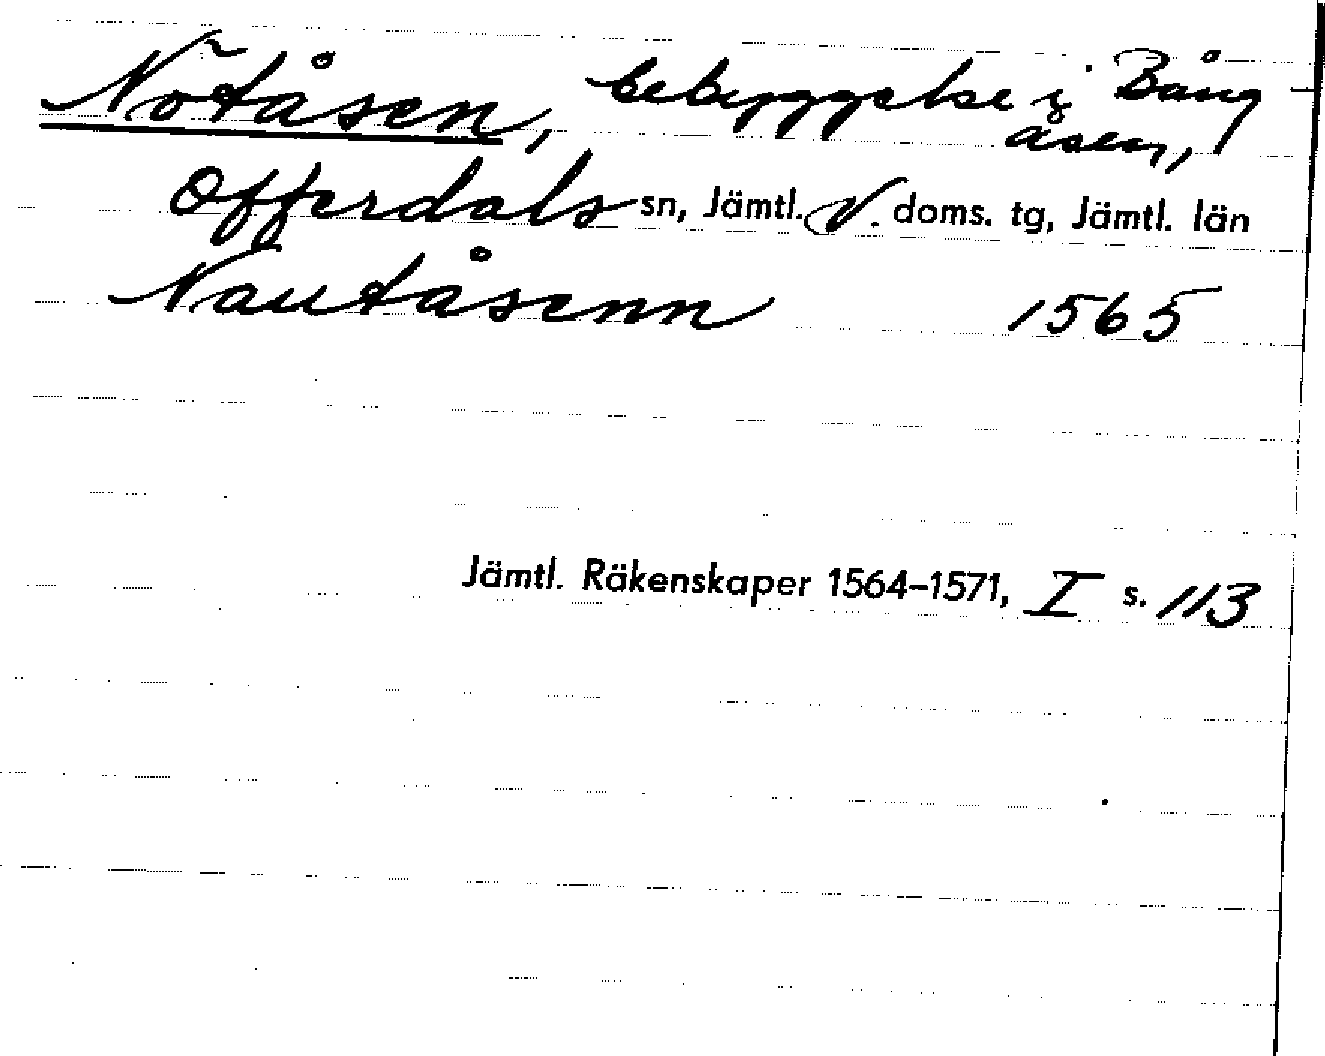 Nötåsen, bebyggelse i Bång
åsen,
Offerdals sn, Jämtl. V. doms. tg, Jämtl. län
Nautåsenn 1565
Jämtl. Räkenskaper 1564–1571, I s. 113